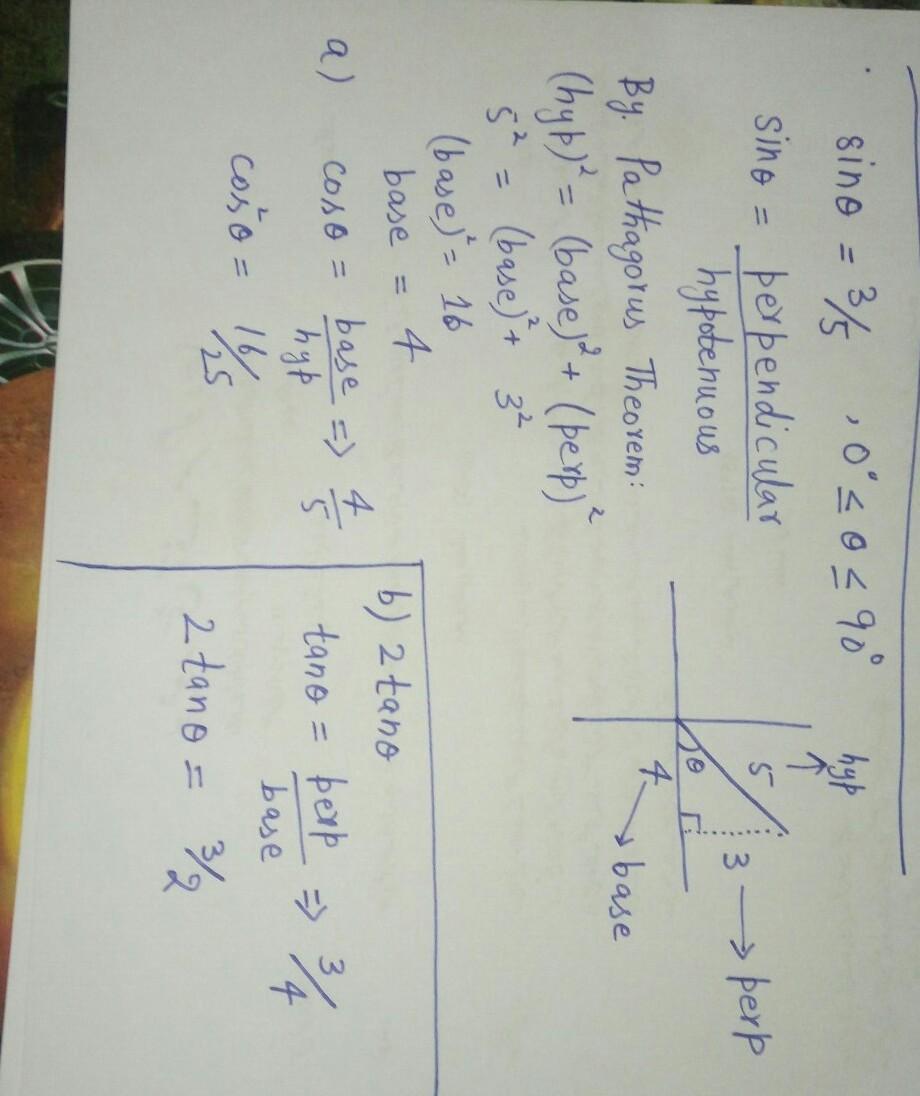 sinθ = 3/5 , 0° ≤ θ ≤ 90°
sinθ = perpendicular
hypotenuous
By. Pathagorus Theorem:
(hyp)² = (base)² + (perp)²
5² = (base)² + 3²
(base)² = 16
base = 4
hyp
5
3 → perp
θ
4 → base
a) cosθ = base/hyp ⇒ 4/5
cos²θ = 16/25
b) 2tanθ
tanθ = perp/base ⇒ 3/4
2tanθ = 3/2